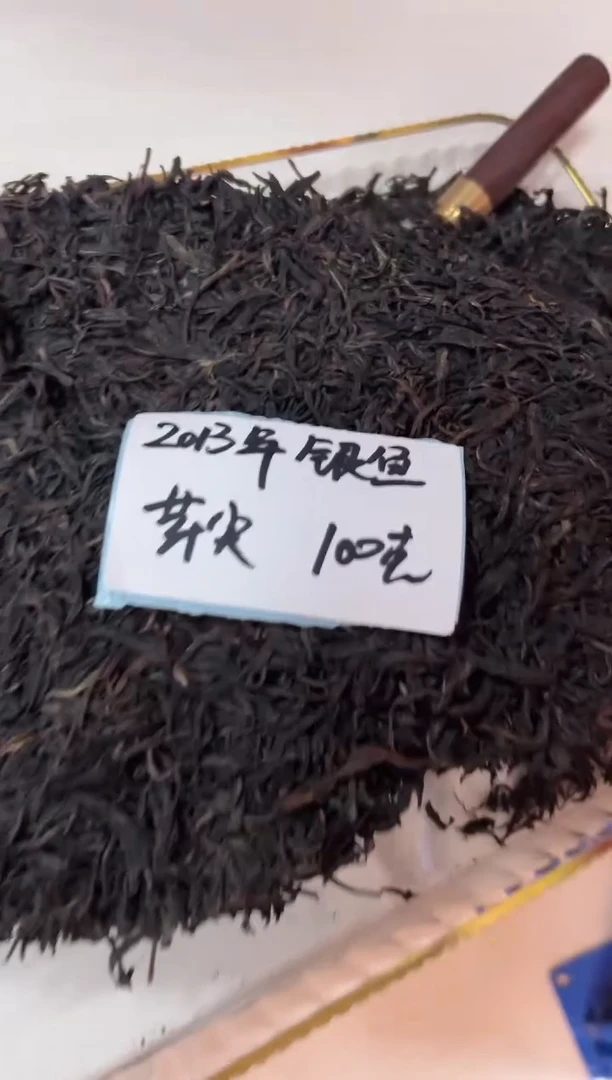 2013年 银鱼
芽尖 100克